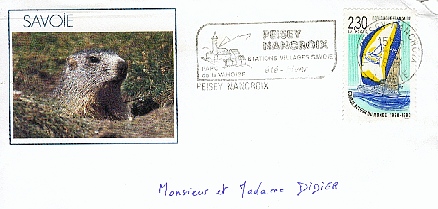 SAVOIE
PEISEY
NANCROIX
STATIONS VILLAGES SAVOIE
PARC
de la VANOISE
PEISEY NANCROIX
2,30
LA POSTE
DU MONDE
Monsieur et Madame DIDIER